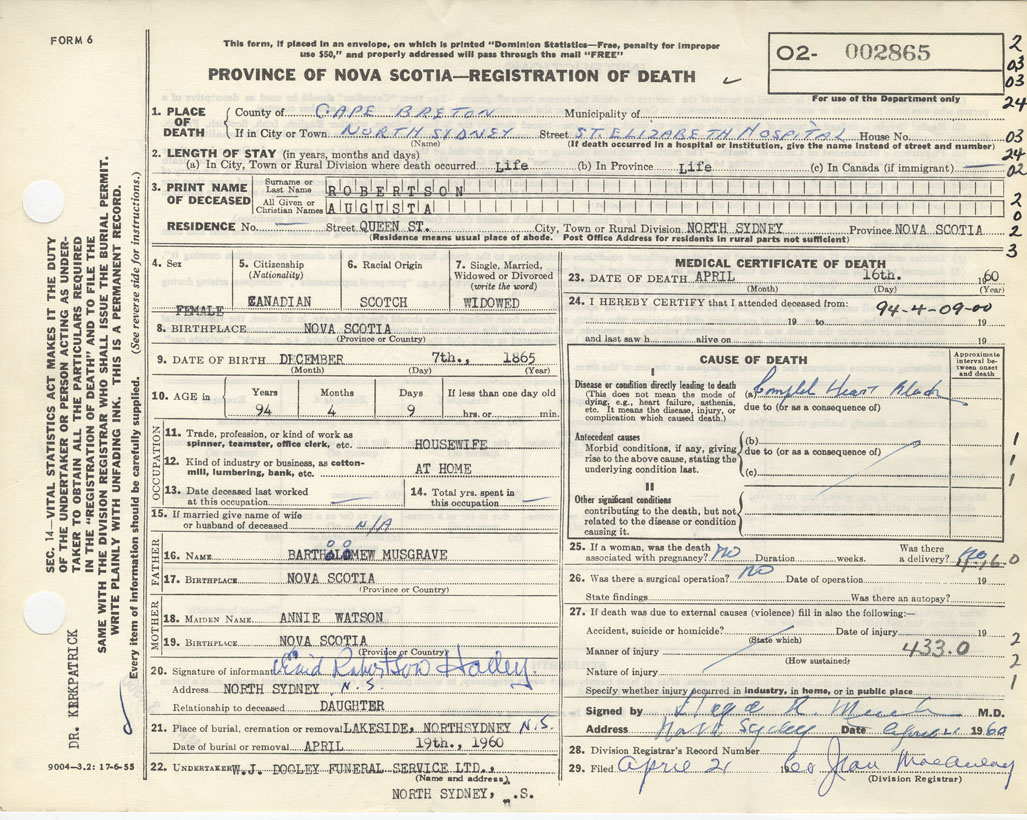 FORM 6
This form, if placed in an envelope, on which is printed "Dominion Statistics—Free, penalty for improper
use $50," and properly addressed will pass through the mail "FREE"
PROVINCE OF NOVA SCOTIA—REGISTRATION OF DEATH
02- 002865
For use of the Department only
2
03
03
24
1. PLACE OF DEATH
County of CAPE BRETON Municipality of
If in City or Town NORTH SIDNEY Street ST. ELIZABETH HOSPITAL House No.
(Name) (If death occurred in a hospital or institution, give the name instead of street and number)
03
24
02
2. LENGTH OF STAY (in years, months and days)
(a) In City, Town or Rural Division where death occurred Life (b) In Province Life (c) In Canada (if immigrant) —
3. PRINT NAME OF DECEASED
Surname or Last Name ROBERTSON
All Given or Christian Names AUGUSTA
2
0
2
3
RESIDENCE No. — Street QUEEN ST. City, Town or Rural Division NORTH SYDNEY Province NOVA SCOTIA
(Residence means usual place of abode. Post Office Address for residents in rural parts not sufficient)
4. Sex
FEMALE
5. Citizenship
(Nationality)
CANADIAN
6. Racial Origin
SCOTCH
7. Single, Married,
Widowed or Divorced
(write the word)
WIDOWED
8. BIRTHPLACE NOVA SCOTIA
(Province or Country)
9. DATE OF BIRTH DECEMBER 7th., 1865
(Month) (Day) (Year)
10. AGE in
Years 94
Months 4
Days 9
If less than one day
hrs. or min.
OCCUPATION
11. Trade, profession, or kind of work as
spinner, teamster, office clerk, etc. HOUSEWIFE
12. Kind of industry or business, as cotton-
mill, lumbering, bank, etc. AT HOME
13. Date deceased last worked
at this occupation —
14. Total yrs. spent in
this occupation —
15. If married give name of wife
or husband of deceased N/A
FATHER
16. NAME BARTHOLOMEW MUSGRAVE
17. BIRTHPLACE NOVA SCOTIA
(Province or Country)
MOTHER
18. MAIDEN NAME ANNIE WATSON
19. BIRTHPLACE NOVA SCOTIA
(Province or Country)
20. Signature of informant Robertson
Address NORTH SYDNEY, N.S.
Relationship to deceased DAUGHTER
21. Place of burial, cremation or removal LAKESIDE, NORTHSYDNEY N.S.
Date of burial or removal APRIL 19th., 1960
22. UNDERTAKER W.J. DOOLEY FUNERAL SERVICE LTD.,
(Name and address)
NORTH SYDNEY, .S.
MEDICAL CERTIFICATE OF DEATH
23. DATE OF DEATH APRIL 16th. 60
(Month) (Day) (Year)
24. I HEREBY CERTIFY that I attended deceased from:
94-4-09-00
19 to 19
and last saw h alive on 19
CAUSE OF DEATH
Approximate interval between onset and death
I
Disease or condition directly leading to death
(This does not mean the mode of
dying, e.g., heart failure, asthenia,
etc. It means the disease, injury, or
complication which caused death.)
(a) Complet Heart Block
due to (or as a consequence of)
Antecedent causes
Morbid conditions, if any, giving
rise to the above cause, stating the
underlying condition last.
(b)
due to (or as a consequence of)
(c)
1
1
1
II
Other significant conditions
contributing to the death, but not
related to the disease or condition
causing it.
25. If a woman, was the death
associated with pregnancy? NO Duration weeks. Was there
a delivery? no
26. Was there a surgical operation? NO Date of operation 19
State findings Was there an autopsy?
27. If death was due to external causes (violence) fill in also the following:—
Accident, suicide or homicide? Date of injury 19
(State which)
Manner of injury 433.0
(How sustained)
Nature of injury
2
2
1
Specify whether injury occurred in industry, in home, or in public place
Signed by M.D.
Address North Sydney Date April 21 1960
28. Division Registrar's Record Number
29. Filed April 21 1960 Jean
(Division Registrar)
SEC. 14—VITAL STATISTICS ACT MAKES IT THE DUTY
OF THE UNDERTAKER OR PERSON ACTING AS UNDER-
TAKER TO OBTAIN ALL THE PARTICULARS REQUIRED
IN THE "REGISTRATION OF DEATH" AND TO FILE THE
SAME WITH THE DIVISION REGISTRAR WHO SHALL ISSUE THE BURIAL PERMIT.
WRITE PLAINLY WITH UNFADING INK. THIS IS A PERMANENT RECORD.
Every item of information should be carefully supplied. (See reverse side for instructions.)
DR. KERKPATRICK
9004—3.2: 17-6-55